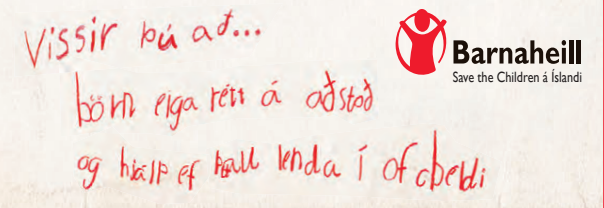 Vissir þú að...
Barnaheill
Save the Children á Íslandi
börn eiga rétt á aðstoð
og hjálp ef þau lenda í ofbeldi